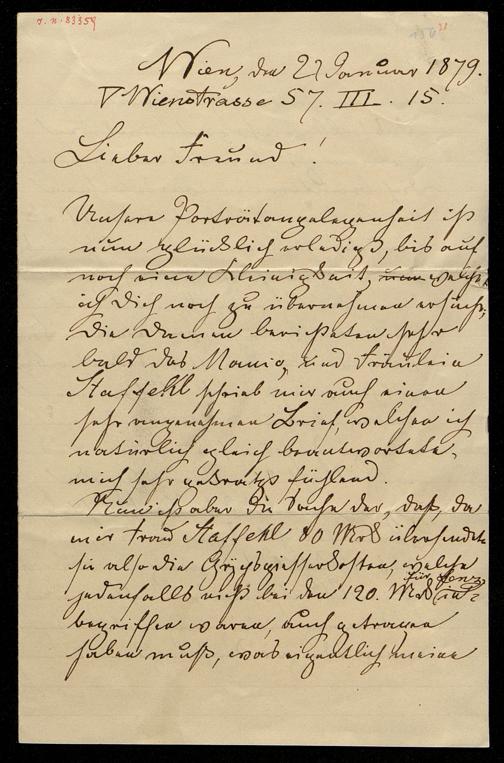 J. N. 83359
Wien, den 22 Januar 1879.
V Wienstrasse 57. III. 15.
Lieber Freund!
Unsere Porträtangelegenheit ist
nun glücklich erledigt, bis auf
noch eine Kleinigkeit, welche
ich Dich noch zu übernehmen ersuche,
die Damen berichteten sehr
bald das und Fräulein
Staffekl schrieb mir auch einen
sehr angenehmen Brief, welchen ich
natürlich gleich beantwortete,
mich sehr geehrt fühlend.
Nun ist aber die Sache der, daß, da
mir Frau Staffekl 80 Mrk übersendete
sie also die Gypsgiesserkosten, welche
jedenfalls nicht bei den 120. Mrk für in-
begriffen waren, auch getragen
haben muß, was eigentlich meine